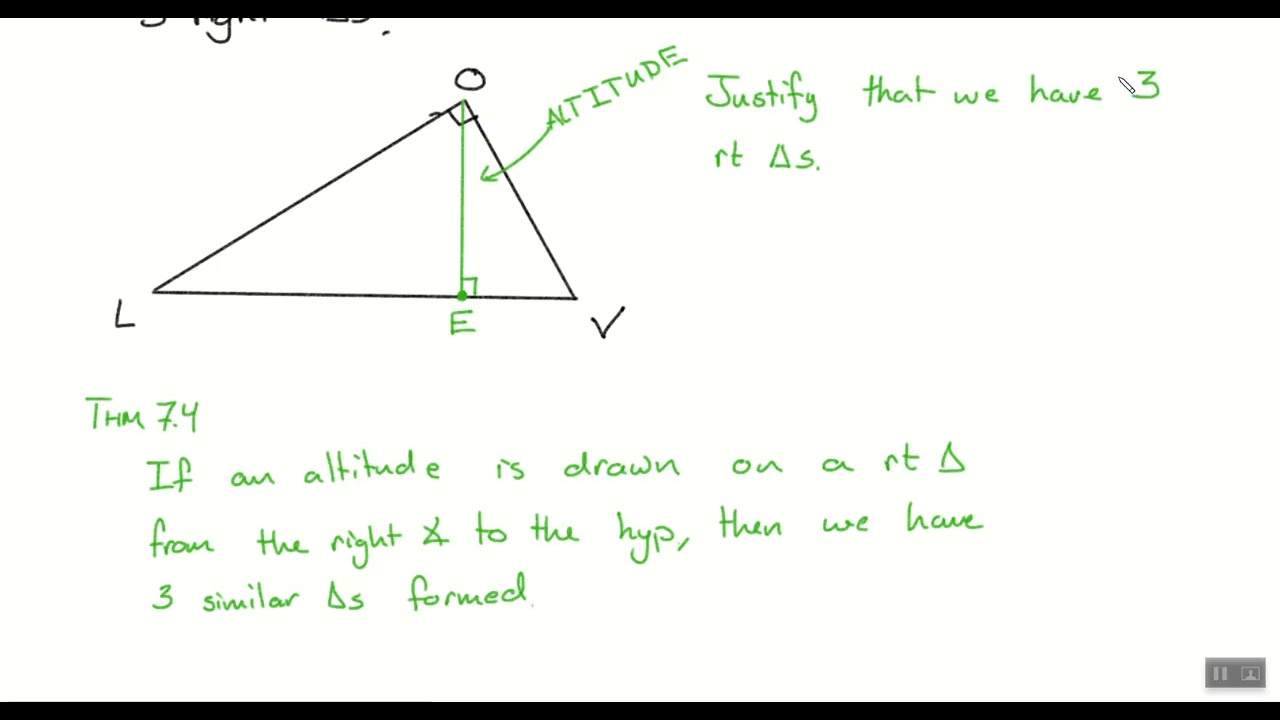 right Δs.
O
ALTITUDE
Justify that we have 3
rt Δs.
L
E
V
THM 7.4
If an altitude is drawn on a rt Δ
from the right ∡ to the hyp, then we have
3 similar Δs formed.